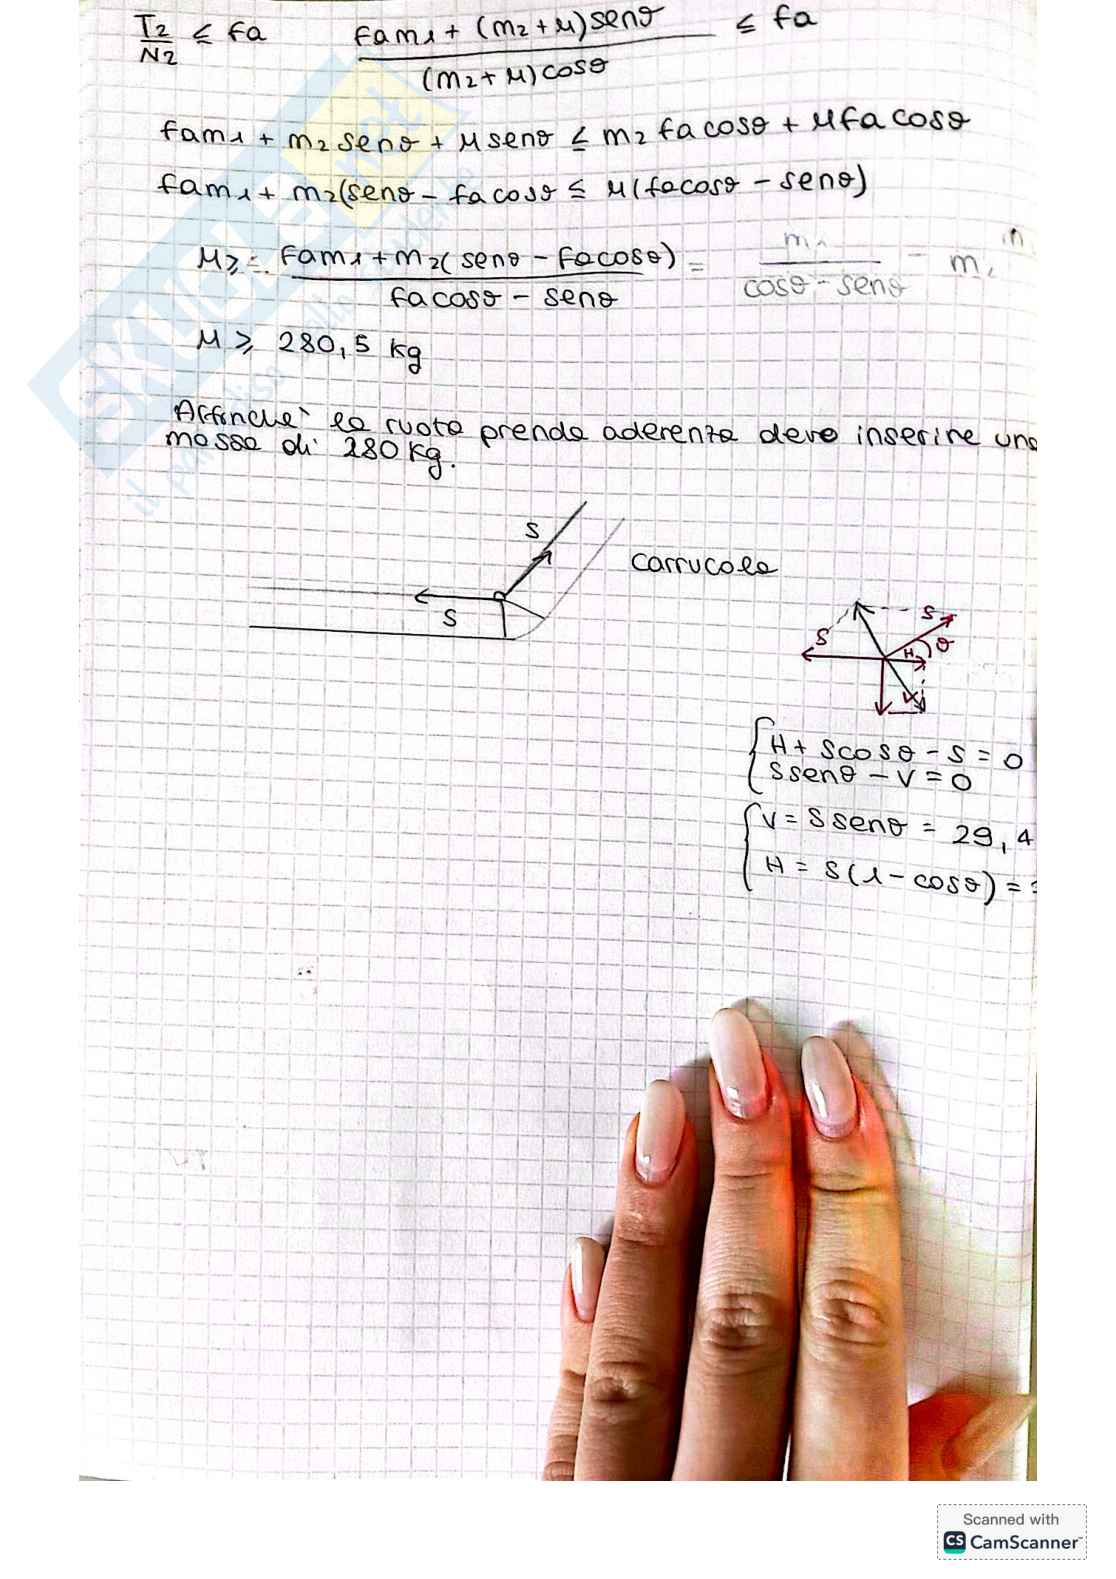 T2/N2 ≤ fa    (fam1 + (m2+M)senθ)/((m2+M)cosθ) ≤ fa
fam1 + m2 senθ + M senθ ≤ m2 fa cosθ + M fa cosθ
fam1 + m2(senθ - fa cosθ ≤ M(fa cosθ - senθ)
M ≥ (fam1 + m2(senθ - fa cosθ))/(fa cosθ - senθ) = m1/(cosθ - senθ) - m2
M ≥ 280,5 kg
Affinchè la ruota prenda aderenza devo inserire una
massa di 280 kg.
S
S
Carrucola
S
S
H
θ
V
{ H + S cosθ - S = 0
S senθ - V = 0
{ V = S senθ = 29,4
H = S(1 - cosθ) =
SKUOLA.net
il paradiso dello studente
Scanned with
CS CamScanner